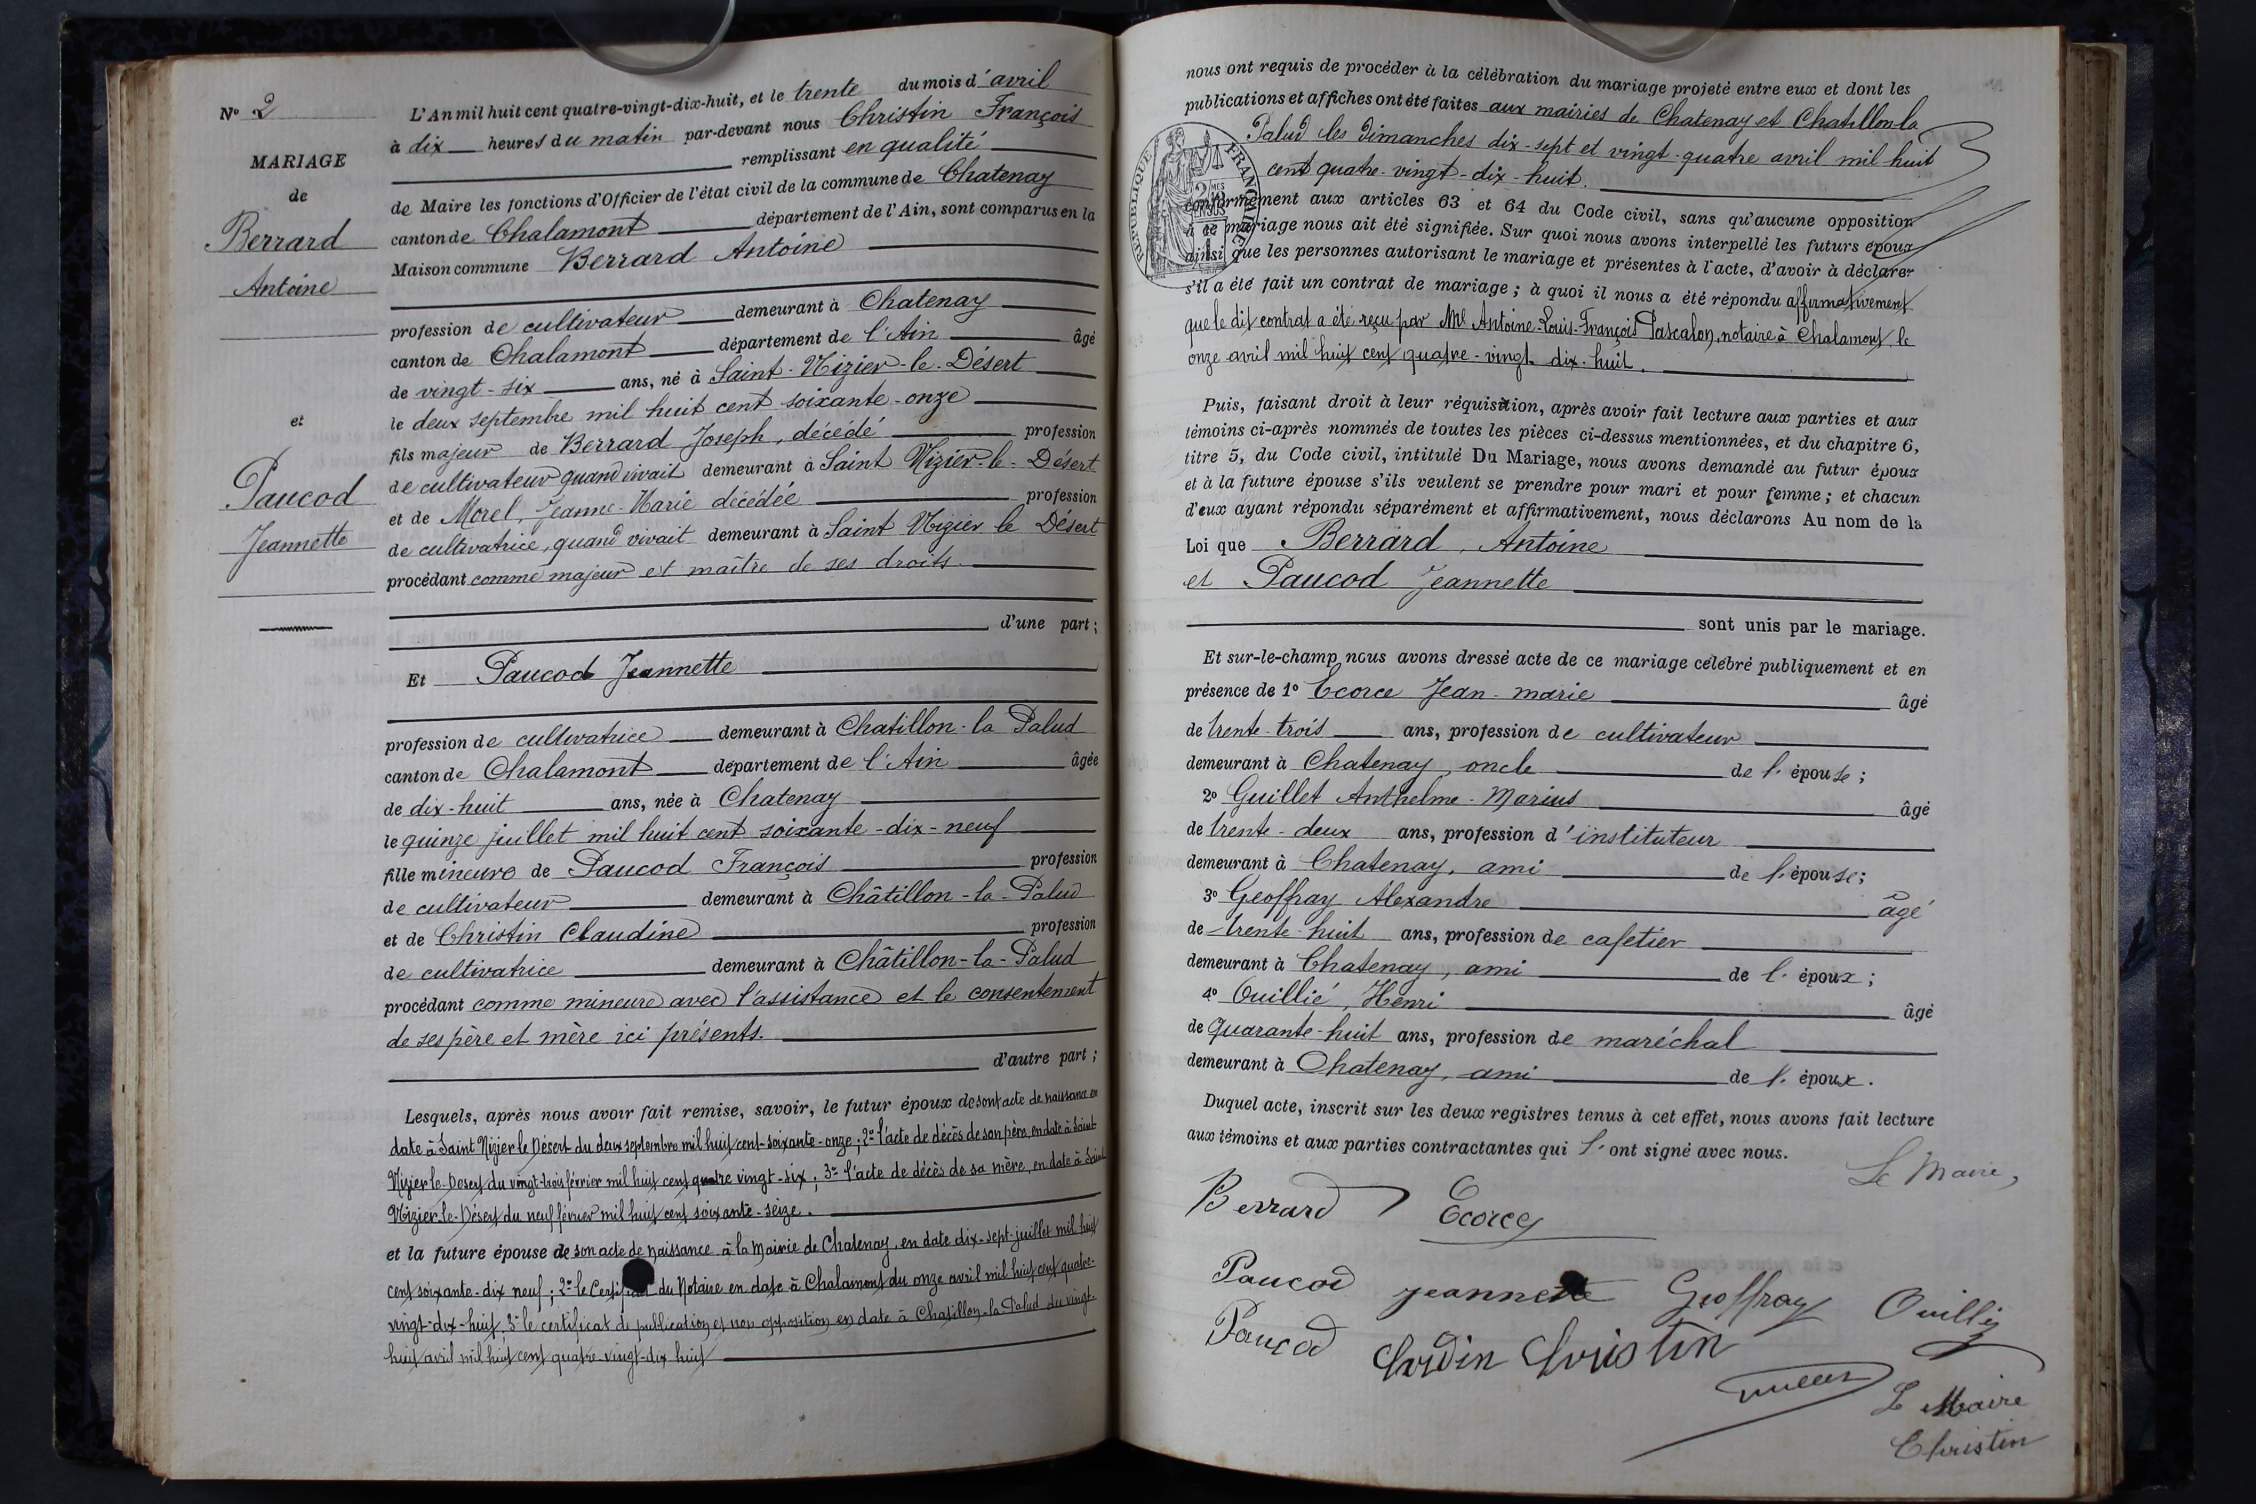 N° 2
MARIAGE
de
Berrard
Antoine
et
Paucod
Jeannette
L'An mil huit cent quatre-vingt-dix-huit, et le trente du mois d'avril
à dix heures du matin par-devant nous Christin François
remplissant en qualité
de Maire les fonctions d'Officier de l'état civil de la commune de Chatenay
canton de Chalamont département de l'Ain, sont comparus en la
Maison commune Berrard Antoine
profession de cultivateur demeurant à Chatenay
canton de Chalamont département de l'Ain âgé
de vingt-six ans, né à Saint-Nizier-le-Désert
le deux septembre mil huit cent soixante-onze
fils majeur de Berrard Joseph, décédé profession
de cultivateur quand vivait demeurant à Saint Nizier-le-Désert
et de Morel, Jeanne-Marie décédée profession
de cultivatrice, quand vivait demeurant à Saint Nizier le Désert
procédant comme majeur et maître de ses droits.
d'une part;
Et Paucod Jeannette
profession de cultivatrice demeurant à Chatillon-la Palud
canton de Chalamont département de l'Ain âgée
de dix-huit ans, née à Chatenay
le quinze juillet mil huit cent soixante-dix-neuf
fille mineure de Paucod François profession
de cultivateur demeurant à Châtillon-la-Palud
et de Christin Claudine profession
de cultivatrice demeurant à Châtillon-la-Palud
procédant comme mineure avec l'assistance et le consentement
de ses père et mère ici présents.
d'autre part;
Lesquels, après nous avoir fait remise, savoir, le futur époux de son acte de naissance en
date à Saint Nizier le Désert du deux septembre mil huit cent-soixante-onze; 2° l'acte de décès de son père, en date à Saint
Nizier-le-Desert du vingt-trois février mil huit cent quatre vingt-six; 3° l'acte de décès de sa mère, en date à Saint
Nizier-le-Désert du neuf février mil huit cent soixante-seize.
et la future épouse de son acte de naissance à la Mairie de Chatenay, en date dix-sept juillet mil huit
cent soixante-dix neuf; 2° le Certificat du Notaire en date à Chalamont du onze avril mil huit cent quatre-
vingt-dix-huit, 3° le certificat de publication et non opposition en date à Chatillon-la-Palud du vingt-
huit avril mil huit cent quatre-vingt-dix huit
nous ont requis de procéder à la célébration du mariage projeté entre eux et dont les
publications et affiches ont été faites aux mairies de Chatenay et Chatillon-la
Palud les Dimanches dix-sept et vingt-quatre avril mil huit
cent quatre-vingt-dix-huit.
RÉPUBLIQUE FRANÇAISE
conformément aux articles 63 et 64 du Code civil, sans qu'aucune opposition
à ce mariage nous ait été signifiée. Sur quoi nous avons interpellé les futurs époux
ainsi que les personnes autorisant le mariage et présentes à l'acte, d'avoir à déclarer
s'il a été fait un contrat de mariage; à quoi il nous a été répondu affirmativement
que le dit contrat a été reçu par Me Antoine-Louis-François Pascalon, notaire à Chalamont le
onze avril mil huit cent quatre-vingt-dix-huit.
Puis, faisant droit à leur réquisition, après avoir fait lecture aux parties et aux
témoins ci-après nommés de toutes les pièces ci-dessus mentionnées, et du chapitre 6,
titre 5, du Code civil, intitulé Du Mariage, nous avons demandé au futur époux
et à la future épouse s'ils veulent se prendre pour mari et pour femme; et chacun
d'eux ayant répondu séparément et affirmativement, nous déclarons Au nom de la
Loi que Berrard, Antoine
et Paucod Jeannette
sont unis par le mariage.
Et sur-le-champ nous avons dressé acte de ce mariage célébré publiquement et en
présence de 1° Ecorce Jean-marie âgé
de trente-trois ans, profession de cultivateur
demeurant à Chatenay, oncle de l'épouse;
2° Guillet Anthelme-Marius âgé
de trente-deux ans, profession d'instituteur
demeurant à Chatenay, ami de l'épouse;
3° Geoffray Alexandre âgé
de trente-huit ans, profession de cafetier
demeurant à Chatenay, ami de l'époux;
4° Ouillié, Henri âgé
de quarante-huit ans, profession de maréchal
demeurant à Chatenay, ami de l'époux.
Duquel acte, inscrit sur les deux registres tenus à cet effet, nous avons fait lecture
aux témoins et aux parties contractantes qui l'ont signé avec nous.
Le Maire,
Berrard Ecorce
Paucod jeannette Geoffray Ouillié
Paucod Clodin Christin
Le Maire
Christin